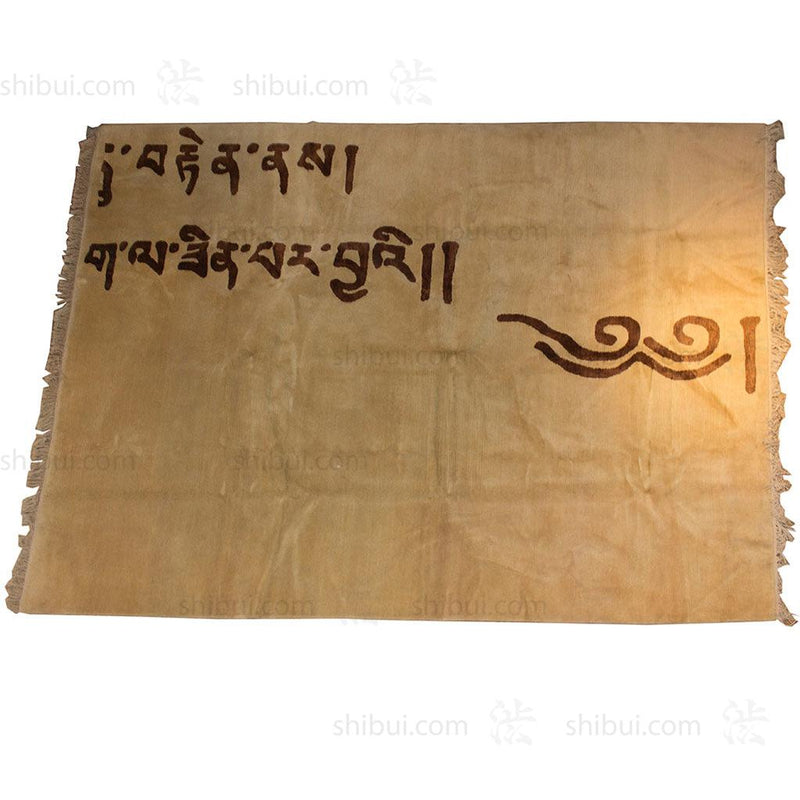 shibui.com 法 shibui.com 法
བརྟེན་ནས།
ག་ལ་ཟིན་པར་བྱའི།།
༄༅།
shibui.com
shibui.com shibui.com
shibui.com shibui.com
shibui.com 法 shibui.com 法